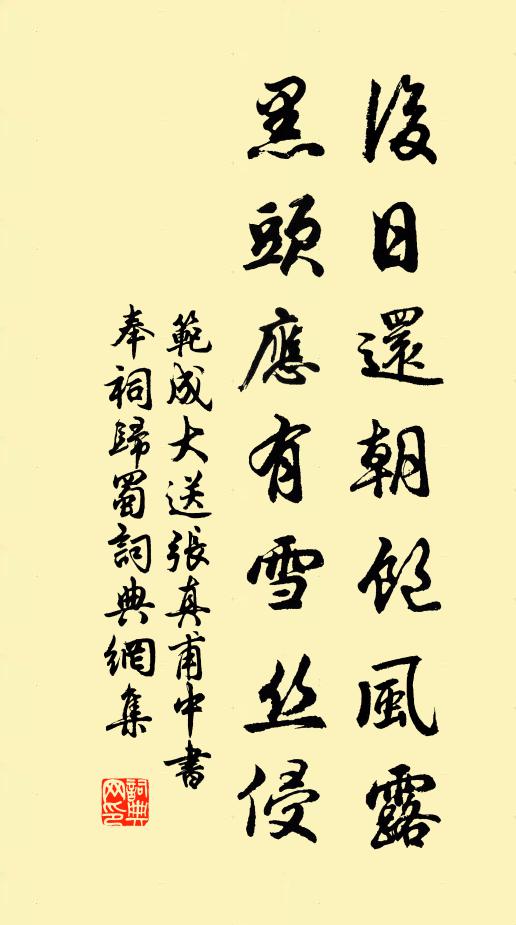 後日還朝飽風露
黑頭應有雪丝侵
範成大送張真甫中書
奉祠歸蜀詞典網集
詞典
网印